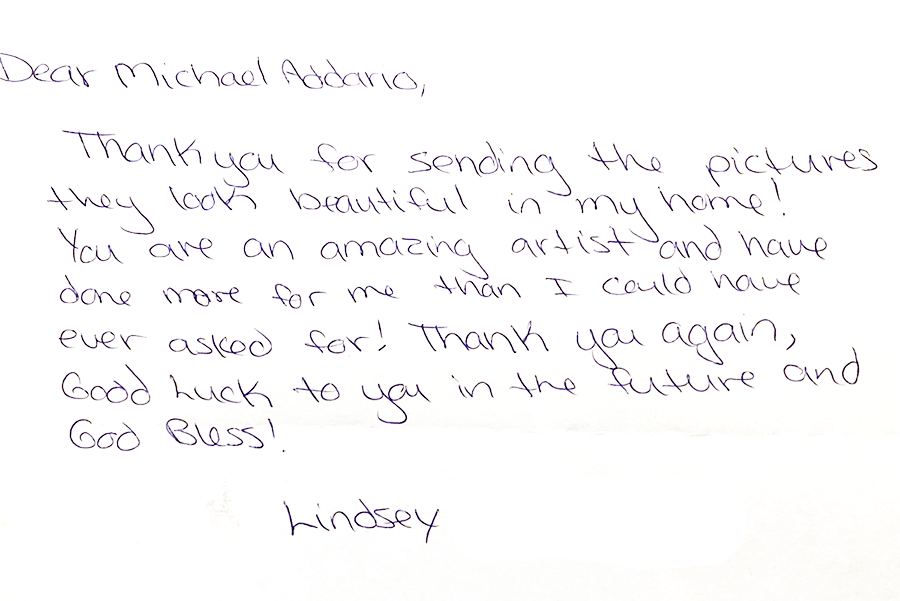 Dear Michael Addario,
Thank you for sending the pictures
they look beautiful in my home!
You are an amazing artist and have
done more for me than I could have
ever asked for! Thank you again,
Good Luck to you in the future and
God Bless!
Lindsey